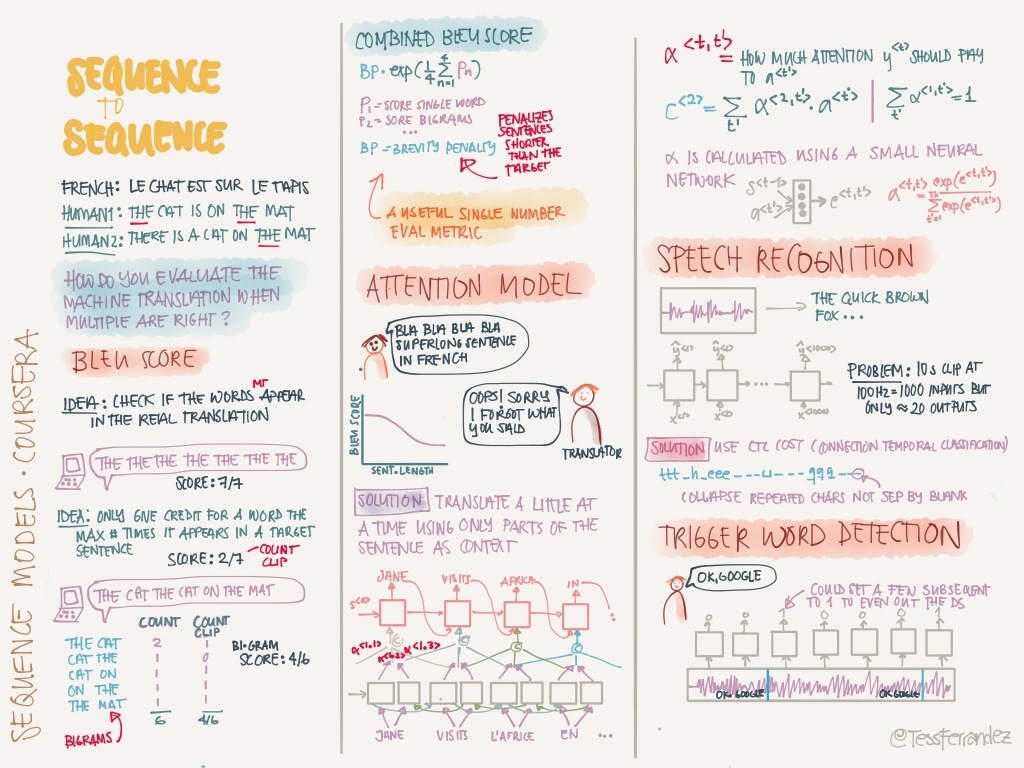 SEQUENCE MODELS · COURSERA
SEQUENCE
TO
SEQUENCE
FRENCH: LE CHAT EST SUR LE TAPIS
HUMAN1: THE CAT IS ON THE MAT
HUMAN2: THERE IS A CAT ON THE MAT
HOW DO YOU EVALUATE THE
MACHINE TRANSLATION WHEN
MULTIPLE ARE RIGHT?
BLEU SCORE
IDEA: CHECK IF THE WORDS MT APPEAR
IN THE REAL TRANSLATION
THE THE THE THE THE THE THE
SCORE: 7/7
IDEA: ONLY GIVE CREDIT FOR A WORD THE
MAX # TIMES IT APPEARS IN A TARGET
SENTENCE
SCORE: 2/7 – COUNT
CLIP
THE CAT THE CAT ON THE MAT
COUNT COUNT
CLIP
THE CAT 2 1
CAT THE 1 0
CAT ON 1 1
ON THE 1 1
THE MAT 1 1
6 4/6
BI-GRAM
SCORE: 4/6
BIGRAMS
COMBINED BLEU SCORE
BP · exp(1/4 Σ Pn)
4
n=1
P1 = SCORE SINGLE WORD
P2 = SORE BIGRAMS
...
BP = BREVITY PENALTY
PENALIZES
SENTENCES
SHORTER
THAN THE
TARGET
A USEFUL SINGLE NUMBER
EVAL METRIC
ATTENTION MODEL
BLA BLA BLA BLA
SUPERLONG SENTENCE
IN FRENCH
OOPS! SORRY
I FORGOT WHAT
YOU SAID
TRANSLATOR
BLEU SCORE
SENT. LENGTH
SOLUTION TRANSLATE A LITTLE AT
A TIME USING ONLY PARTS OF THE
SENTENCE AS CONTEXT
JANE VISITS AFRICA IN ...
S<0>
C C C C
α<1,1> α<1,2> α<1,3>
JANE VISITS L'AFRICE EN ...
α<t,t'> = HOW MUCH ATTENTION y<t> SHOULD PAY
TO a<t'>
C<2> = Σt' α<2,t'> · a<t'> | Σt' α<1,t'> = 1
α IS CALCULATED USING A SMALL NEURAL
NETWORK
S<t-1>
a<t'>
e<t,t'>
α<t,t'> = exp(e<t,t'>)
Σ exp(e<t,t'>)
SPEECH RECOGNITION
THE QUICK BROWN
FOX ...
ŷ<1> ŷ<2> ŷ<1000>
...
x<1> x<2> x<1000>
PROBLEM: 10s CLIP AT
100Hz = 1000 INPUTS BUT
ONLY ≈ 20 OUTPUTS
SOLUTION USE CTC COST (CONNECTION TEMPORAL CLASSIFICATION)
ttt_h_eee---⊔---qqq--
COLLAPSE REPEATED CHARS NOT SEP BY BLANK
TRIGGER WORD DETECTION
OK, GOOGLE
COULD SET A FEW SUBSEQUENT
TO 1 TO EVEN OUT THE DS
0 0 1 0 0 0 1
OK, GOOGLE OK, GOOGLE
@TessFerrandez